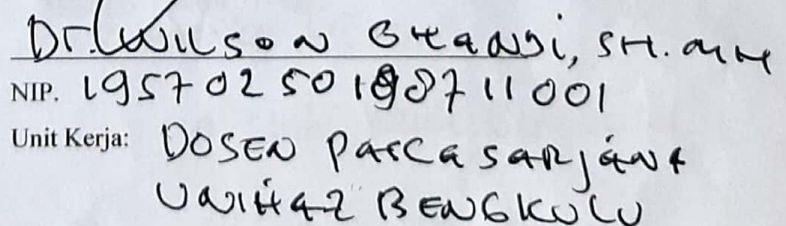 Dr. WILSON GHANDI, SH. MH
NIP. 19570250198711001
Unit Kerja: DOSEN PASCASARJANA
UNIHAZ BENGKULU